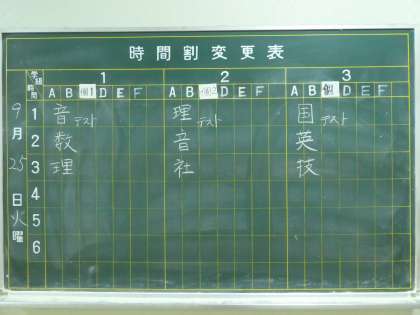 時間割変更表
学級 1 2 3
時間 A B 個1 D E F A B 個2 D E F A B 個 D E F
9月25日火曜
1 音テスト 理テスト 国テスト
2 数 音 英
3 理 社 技
4
5
6